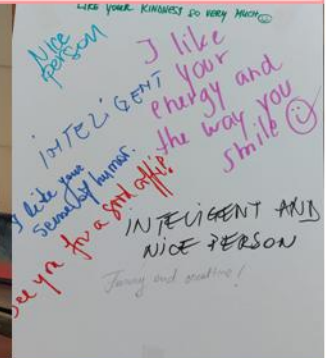 LIKE YOUR KINDNESS SO VERY MUCH
Nice
person
I like
your
energy and
the way you
smile
INTELIGENT
I like your
sense of humor.
see you for a good
INTELIGENT AND
NICE PERSON
Funny and creative!